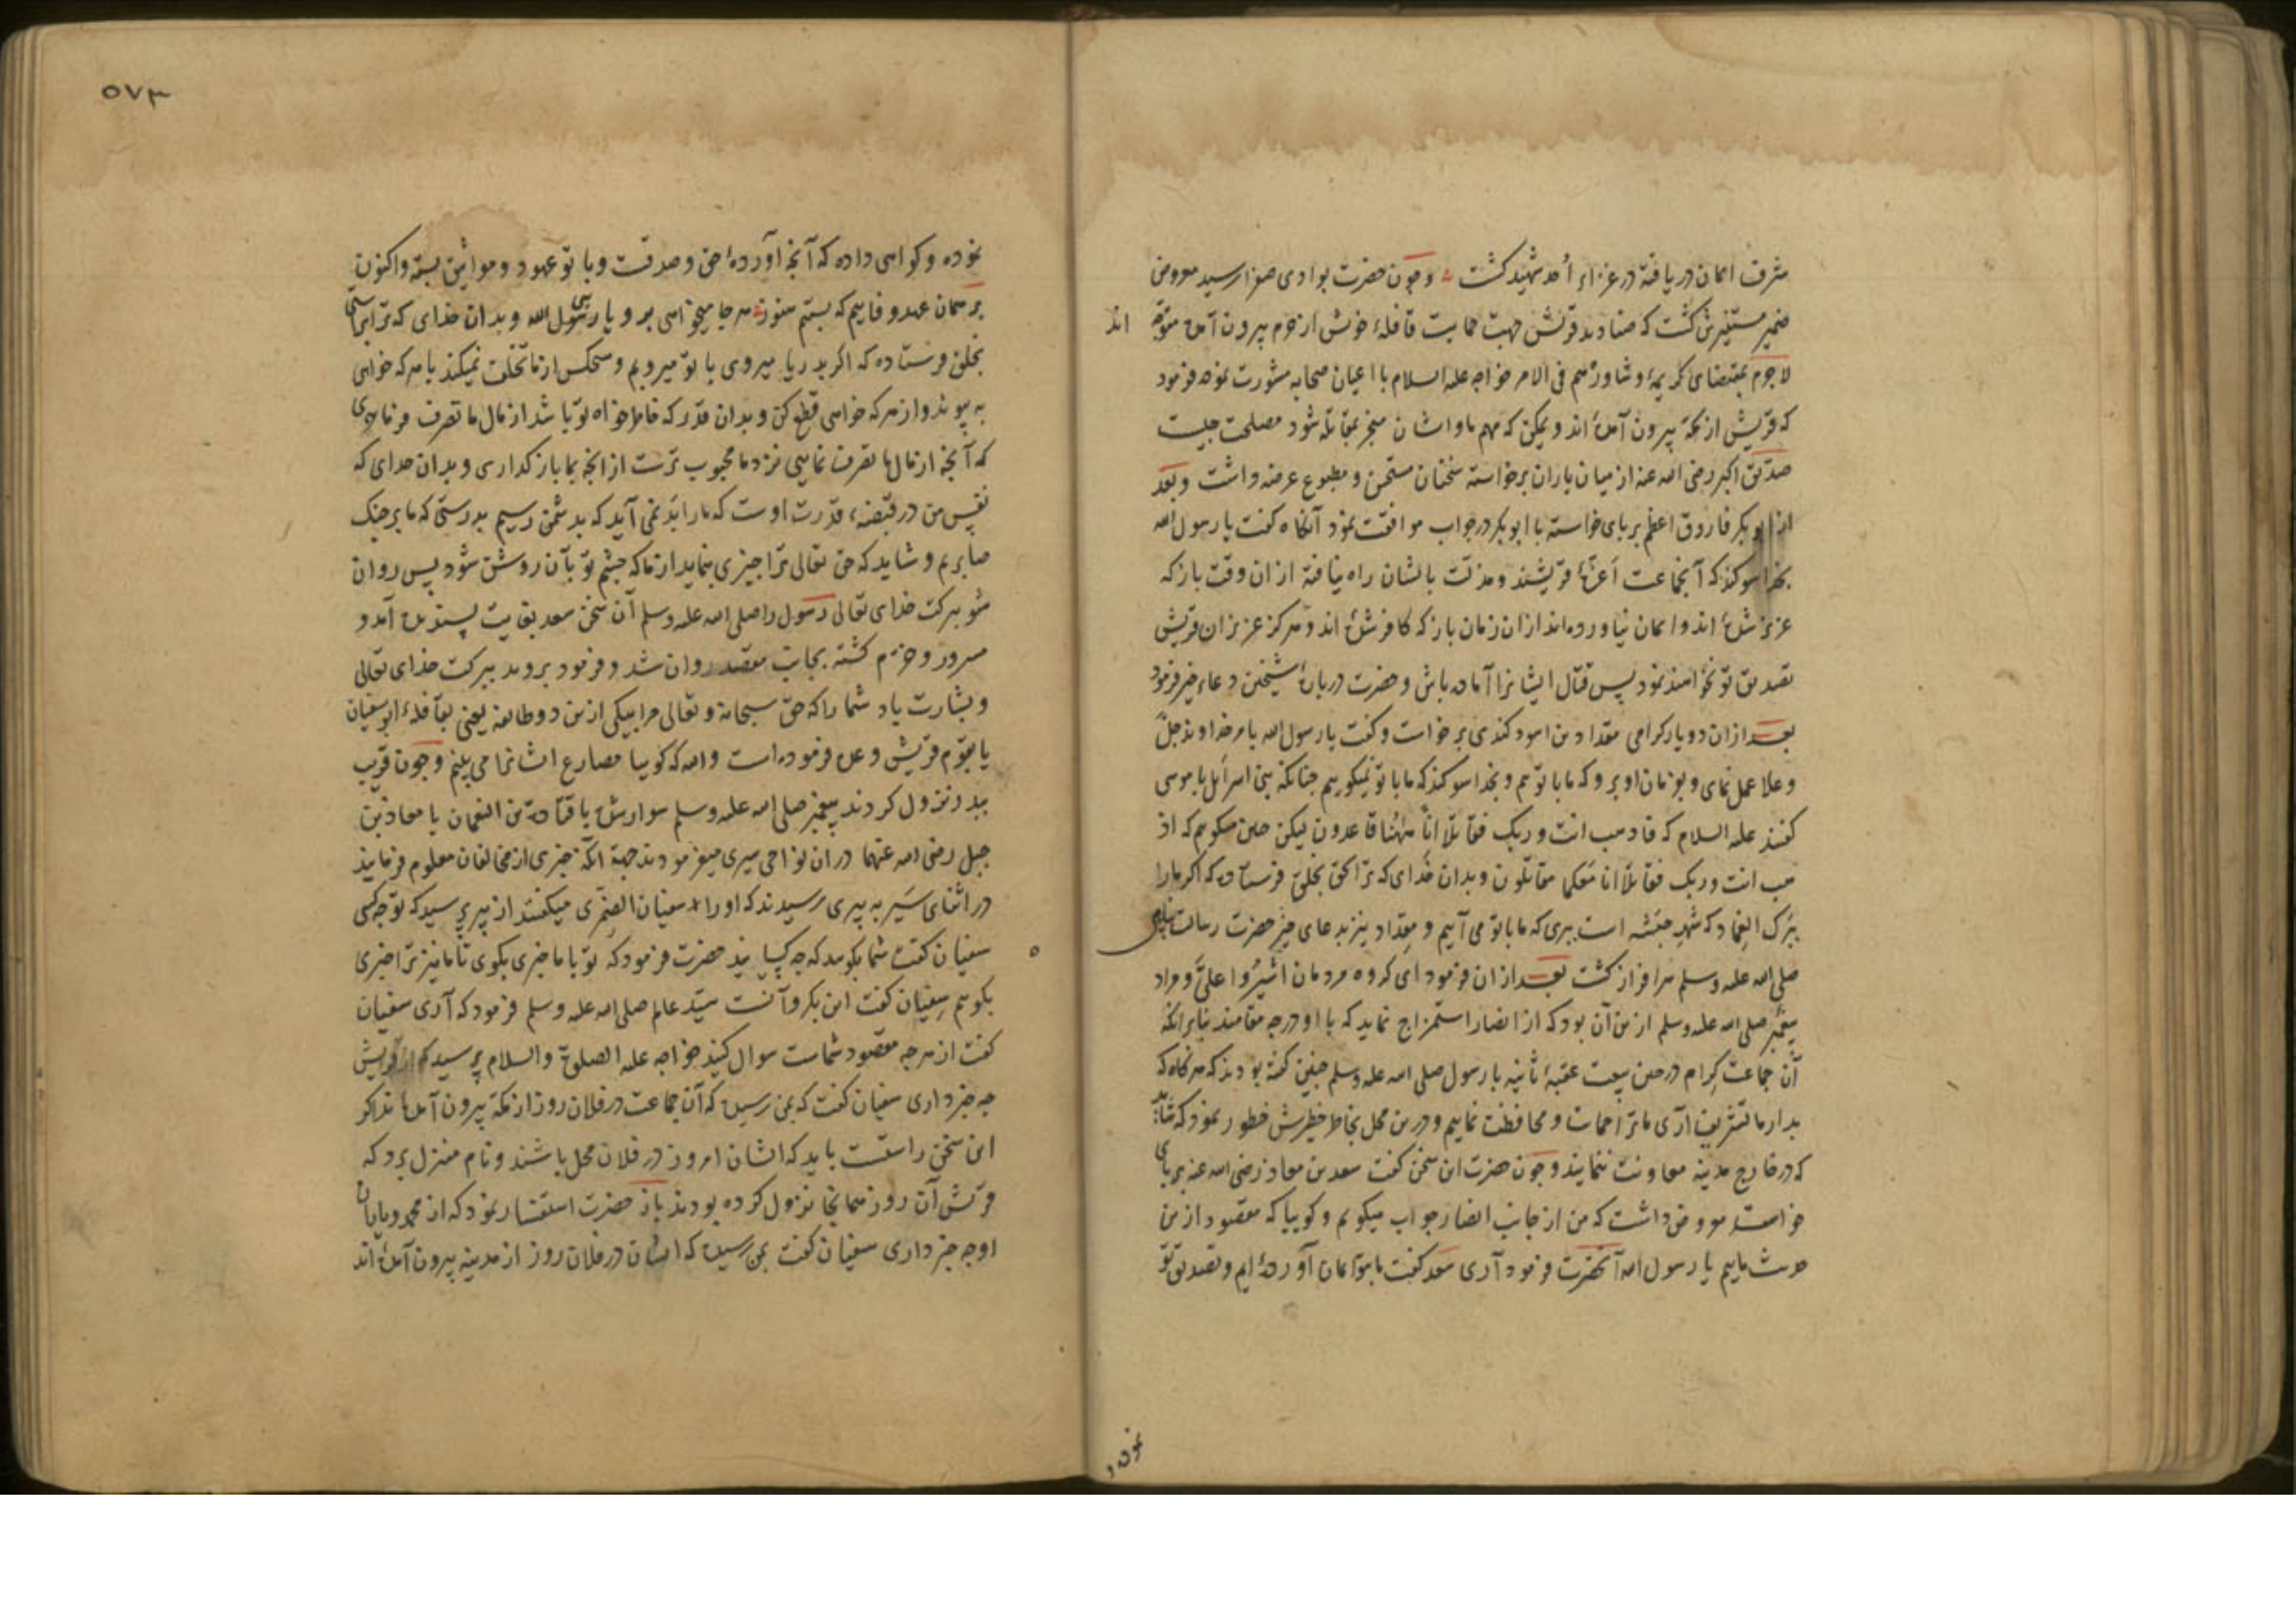 شرف ایمان دریافته در غزاء اُحد شهید کشت و چون حضرت بوادی صفرا رسید معروض
ضمیر مستنیرش کشت که صنادید قریش جهت حمایت قافلهٔ خویش از حرم بیرون آمده متوجه اند
لاجرم بمقتضای کریمهٔ وشاورْهم فی الامر خواجه علیه السلام با اعیان صحابه مشورت نموده فرمود
که قریش از مکّه بیرون آمدهٔ اند و یمکن که مهم ما و ایشان منجر بمقاتله شود مصلحت چیست
صدّیق اکبر رضی الله عنه از میان یاران برخواسته سخنان مستحسن و مطبوع عرضه داشت و بعد
از ابوبکر فاروق اعظم بر پای خواسته با ابوبکر در جواب موافقت نمود آنکاه کفت یا رسول الله
بخدا سوکند که آنجماعت اَعزّهٔ قریشند و مذلّت بایشان راه نیافته از ان وقت باز که
عزیز شدهٔ اند و ایمان نیاورده‌اند از ان زمان باز که کافر شدهٔ اند و هرکز عزیزان قریش
تصدیق تو نخواهند نمود پس قتال ایشانرا آماده باش و حضرت دربارهٔ شیخین دعاء خیر فرمود
بعد از ان دو یار کرامی مقداد بن اسود کندی برخواست و کفت یا رسول الله بامر خداوند جلّ
و علا عمل نمای و بفرمان او برو که ما با توایم و بخدا سوکند که ما با تو نمیکوییم چنانکه بنی اسرائیل با موسی
کفتند علیه السلام که فاذهب انت و ربک فقاتلا انّا ههُنا قاعدون لیکن چنین میکوییم که اذ
هب انت و ربک فقاتلا انا معکما مقاتلون و بدان خدای که ترا بحق بخلق فرستاده که اکر ما را
ببَرک الغماد که شهر حبَشه است ببری که ما با تو می آییم و مقداد نیز بدعای خیر حضرت رسالت پناهی
صلی الله علیه وسلم سرافراز کشت بعد از ان فرمود ای کروه مردمان اشیرُوا علیَّ و مراد
پیغمبر صلی الله علیه وسلم از این آن بود که از انصار استمزاج نماید که با او در چه مقامند بنابرانکه
آن جماعت کِرام در حین بیعت عقبهٔ ثانیه با رسول صلی الله علیه وسلم چنین کفته بودند که هرکاه که
بدار ما تشریف آری ما ترا حمایت و محافظت نماییم و درین محل بخاطر خطیرش خطور نمود که شاید
که در خارج مدینه معاونت ننمایند و چون حضرت این سخن کفت سعد بن معاذ رضی الله عنه بر پای
خواسته معروض داشت که من از جانب انصار جواب میکویم و کوییا که مقصود از این
حدیث ماییم یا رسول الله آنحضرت فرمود آری سعد کفت ما بتو ایمان آوردهٔ ایم و تصدیق تو
نموده و
٥٧٣
نموده و کواهی داده که آنچه آوردهٔ حق و صدقست و با تو عهود و مواثیق بسته و اکنون
بر همان عهد و فاییم که بستیم هنوز هر جا میخواهی برو یا رسول الله و بدان خدای که ترا براستی
بخلق فرستاده که اکر بدریا میروی با تو میرویم و هیچکس از ما تخلّف نمیکند با هر که خواهی
به پیوند و از هر که خواهی قطع کن و بدان قدر که خاطر خواه تو باشد از مال ما تصرف فرمای
که آنچه از مال ما تصرف نمایی نزد ما محبوب ترست از انچه بما باز کذاری و بدان خدای که
نفس من در قبضهٔ قدرت اوست که ما را بَد نمی آید که بدشمن رسیم بدرستی که ما بر جنک
صابریم و شاید که حق تعالی ترا چیزی بنماید از ما که چشم تو بآن روشن شود پس روان
شو ببرکت خدای تعالی رسول را صلی الله علیه وسلم آن سخن سعد بغایت پسندیده آمد و
مسرور و خرّم کشته بجانب مقصد روان شد و فرمود بروید ببرکت خدای تعالی
و بشارت باد شما را که حق سبحانه و تعالی مرا بیکی از این دو طایفه یعنی بقافلهٔ ابوسفیان
یا بقوم قریش وعده فرموده است و الله که کوییا مصارع ایشانرا می بینم و چون قریب
ببدر نزول کردند پیغمبر صلی الله علیه وسلم سوار شده با قتادة بن النعمان یا معاذ بن
جبل رضی الله عنهما در ان نواحی سیری میفرمودند جهة آنکه خبری از مخالفان معلوم فرمایند
در اثنای سَیر به پیری رسیدند که او را سفیان الضمری میکفتند از پیر پرسید که تو چه کسی
سفیان کفت شما بکویید که چه کسانید حضرت فرمود که تو با ما خبری بکوی تا ما نیز ترا خبری
بکوییم سفیان کفت این بکرو آنست سیّد عالم صلی الله علیه وسلم فرمود که آری سفیان
کفت از هر چه مقصود شماست سوال کنید خواجه علیه الصلوة والسلام پرسید که از قریش
چه خبر داری سفیان کفت که بمن رسیده که آن جماعت در فلان روز از مکّه بیرون آمده اند اکر
این سخن راستست باید که ایشان امروز در فلان محل باشند و نام منزل برد که
قریش آن روز همانجا نزول کرده بودند باز حضرت استفسار نمود که از محمد و یاران
او چه خبر داری سفیان کفت بمن رسیده که ایشان در فلان روز از مدینه بیرون آمدهٔ اند